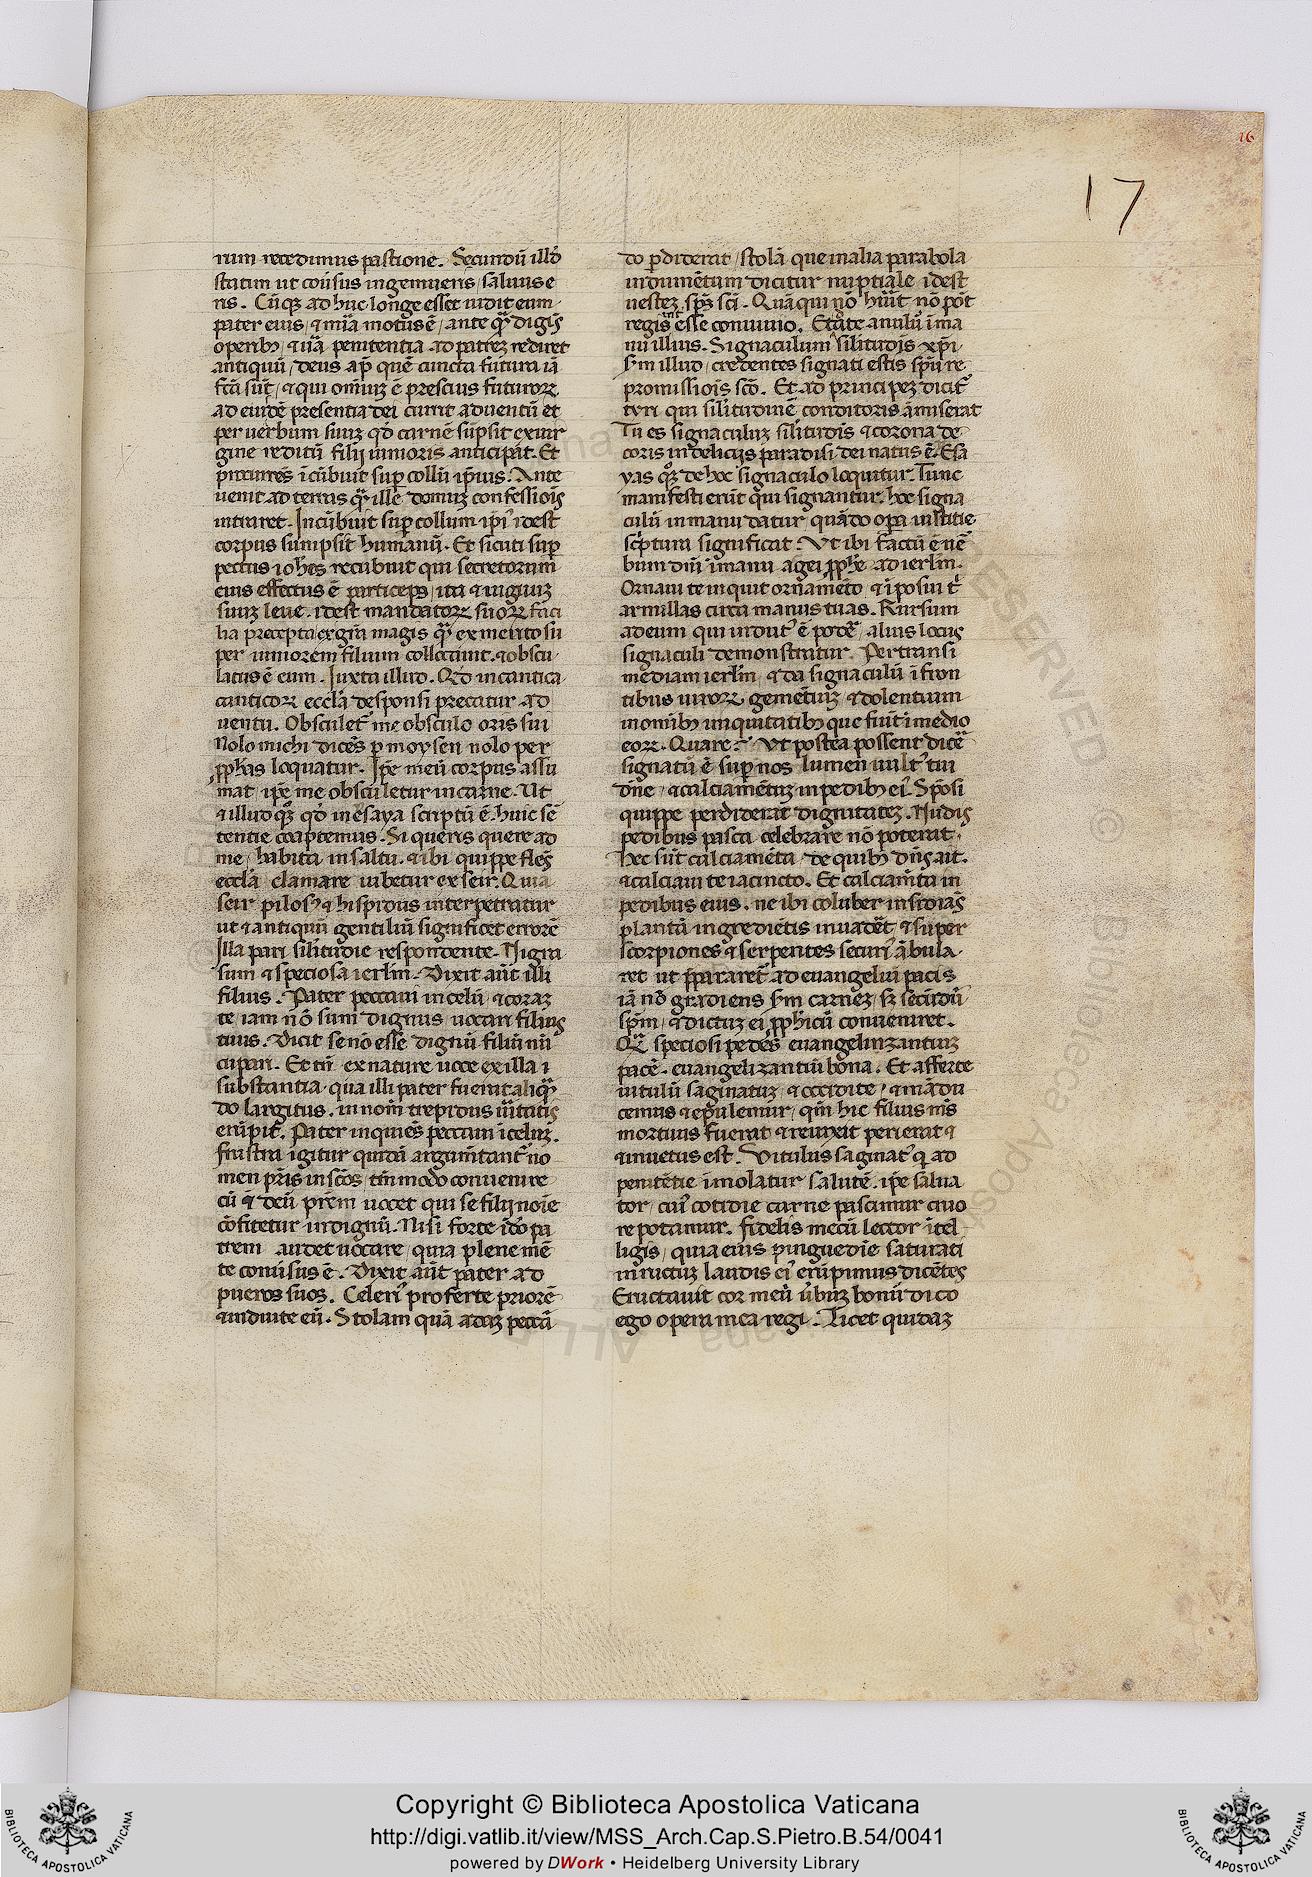 16
17
rum recedimus pastione. Secundū illd̄
statim ut cōūsus ingemueris / saluus e
ris. Cūq; ad huc longe esset uidit eum.
pater eius / ⁊ mīa motus ē / ante qͣ̄ digis̄
operibꝫ / ⁊ uā penitentia ad patrez rediret
antiquū / deus ap̄ quē cuncta futura iā
fc̄a sūt / ⁊ qui om̄iuz ē prescius futuroꝝ
ad eiudē presentia dei currit aduentū et
per uerbum suuz qd̄ carnē sūpsit ex uir
gine reditū filij iunioris anticipat. Et
procurrēs īcūbuit sup̄ collū ip̄ius. Ante
uenit ad terras qͣ̄ ille domuz confessiois̄
intraret. Incūbuit sup̄ collum ip̄iꝰ idest
corpus sumpsit humanū. Et sicuti sup̄
pectus iohēs recūbuit qui secretorum
eius effectus ē particeps / ita ⁊ iugiuz
suuz leue. idest mandatoꝝ suoꝝ faci
lia precepta / ex grā magis qͣ̄ ex merito su
per iuniorem filium collocauit. ⁊ obscu
latus ē eum. Iuxta illud. Qd̄ in cantica
canticoꝝ eccl̄a desponsi precatur ad
uentu. Obsculet̄ me obsculo oris sui
Nolo michi dicēs p moysen nolo per
ꝓphās loquatur. Ip̄e meū corpus assu
mat ip̄e me obsculetur in carne. Ut
⁊ illud qͦꝫ qd̄ in esaya scriptū ē. huic sē
tentie coaptemus. Si queris quere ad
me / habita in saltu. ⁊ ibi quippe flēs
eccl̄a clamare iubetur ex seir. Quia
seir pilosꝰ ⁊ hispidus interpetratur
ut ⁊ antiquū gentiliū significet errorē
Illa pari silitudīe respondente. Nigra
sum ⁊ speciosa ierl̄m. Dixit aūt illi
filius. Pater peccaui in celū / ⁊ coraz
te / iam nō sum dignus uocari filius
tuus. Dicit se nō esse dignū filiū nū
cupari. Et tn̄ ex nature uoce ex illa ī
substantia. qua illi pater fuerat aliqͣ̄
do largitus. in nom̄ trepidus ūitatis
erūpit. Pater inquiēs peccaui ī celuz.
frustra igitur quidā argum̄tant̄ no
men pr̄is in sc̄os / tm̄modo conuenire
cū ⁊ deū prēm uocet qui se filij noīe
cōfitetur indignū. Nisi forte idō pa
trem audet uocare quia plene mē
te conūsus ē. Dixit aūt pater ad
pueros suos. Celeriꝰ proferte priorē
⁊ induite eū. Stolam quā adaz peccā
do p̄diderat / stolā que in alia parabola
indumētum dicitur nuptiale idest
uestez sp̄s sc̄i. Quā qui nō hūit nō pōt
regis īnt̄ esse conuiuio. Et date anulū ī ma
nū illius. Signaculum silitudīs xp̄i
s̄m illud / credentes signati estis sp̄u re
promissiois̄ sc̄o. Et ad principez dicit̄
tyri qui silitudinē conditoris āmiserat
Tu es signaculuz silitudīs ⁊ corona de
coris in delicijs paradisi dei natus ē. Esa
yas qͦꝫ de hoc signaculo loquitur. Tunc
manifesti erūt qui signantur. hoc signa
culū in manu datur / quādo oꝑa iustitie
scͥptura significat. Ut ibi factū ē uē
bum dn̄i ī manu agei ꝓphe ad ierl̄m.
Ornaui te inquit ornamēto / ⁊ īposui tͥ
armillas circa manus tuas. Rursum
ad eum qui indutꝰ ē podē / alius locus
signaculi demonstratur. Pertransi
mediam ierl̄m / ⁊ da signaculū ī fron
tibus uiroꝝ gemētiuz ⁊ dolentium
in omibꝫ iniquitatibꝫ que fiūt ī medio
eoꝝ. Quare? Ut postea possent dicē
signatū ē sup̄ nos lumen uultꝰ tui
dn̄e / ⁊ calciamētuz in pedibꝫ eiꝰ. Sp̄osi
quippe perdiderat dignitatez. Nudis
pedibus pasca celebrare nō poterat.
hec sūt calciamēta / de quibꝫ dn̄s ait.
⁊ calciaui te iacincto. Et calciam̄ta in
pedibus eius. ne ibi coluber insidiās
plantā ingrediētis inuadēt / ⁊ super
scorpiones ⁊ serpentes securꝰ ābula
ret ut p̄pararet̄ ad euangeliū pacis
iā nō gradiens s̄m carnez / sꝫ secūdū
sp̄m / ⁊ dictuz ei ꝓphicū conueniret.
Qͣ̄ speciosi pedes euangelinzantiuz
pacē. euangelizantiū bona. Et afferte
uitulū saginatuz / ⁊ occidite / ⁊ mādu
cemus ⁊ epulemur / qm̄ hic filius m̄s
mortuus fuerat ⁊ reuixit perierat ⁊
⁊ inuetus est. Vitulus saginatꝰ q̄ ad
penitētie imolatur salutē. ip̄e salua
tor / cuiꝰ cotidie carne pascimur cruo
re potamur. fidelis mecū lector ītel
ligis / quia eius pinguedīe saturati
in ructuz laudis eiꝰ erūpimus dicētes
Eructauit cor meū ūbuz bonū dico
ego opera mea regi. Licet quidaz
Copyright © Biblioteca Apostolica Vaticana
http://digi.vatlib.it/view/MSS_Arch.Cap.S.Pietro.B.54/0041
powered by DWork • Heidelberg University Library
BIBLIOTECA APOSTOLICA VATICANA
BIBLIOTECA APOSTOLICA VATICANA